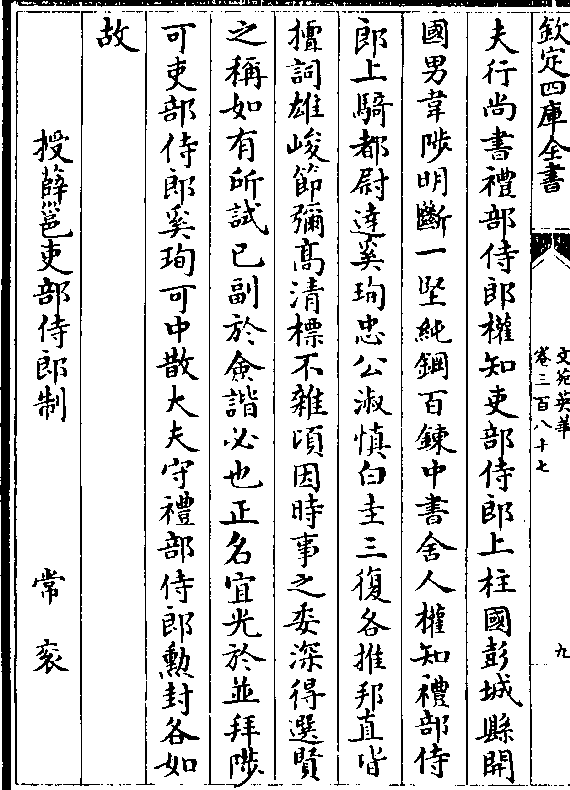 欽定四庫全書
文苑英華
卷三百八十七
九
夫行尚書禮部侍郎權知吏部侍郎上柱國彭城縣開
國男韋陟明斷一堅純鋼百鍊中書舍人權知禮部侍
郎上騎都尉達奚珣忠公淑慎白圭三復各推邦直皆
擅詞雄峻節彌高清標不雜頃因時事之委深得選賢
之稱如有所試已副於僉諧必也正名宜光於並拜陟
可吏部侍郎奚珣可中散大夫守禮部侍郎勲封各如
故
授薛邕吏部侍郎制 常衮